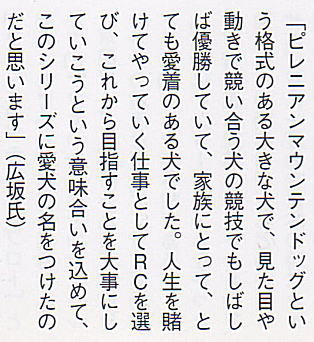 「ピレニアンマウンテンドッグとい
う格式のある大きな犬で、見た目や
動きで競い合う犬の競技でもしばし
ば優勝していて、家族にとって、と
ても愛着のある犬でした。人生を賭
けてやっていく仕事としてRCを選
び、これから目指すことを大事にし
ていこうという意味合いを込めて、
このシリーズに愛犬の名をつけたの
だと思います」（広坂氏）